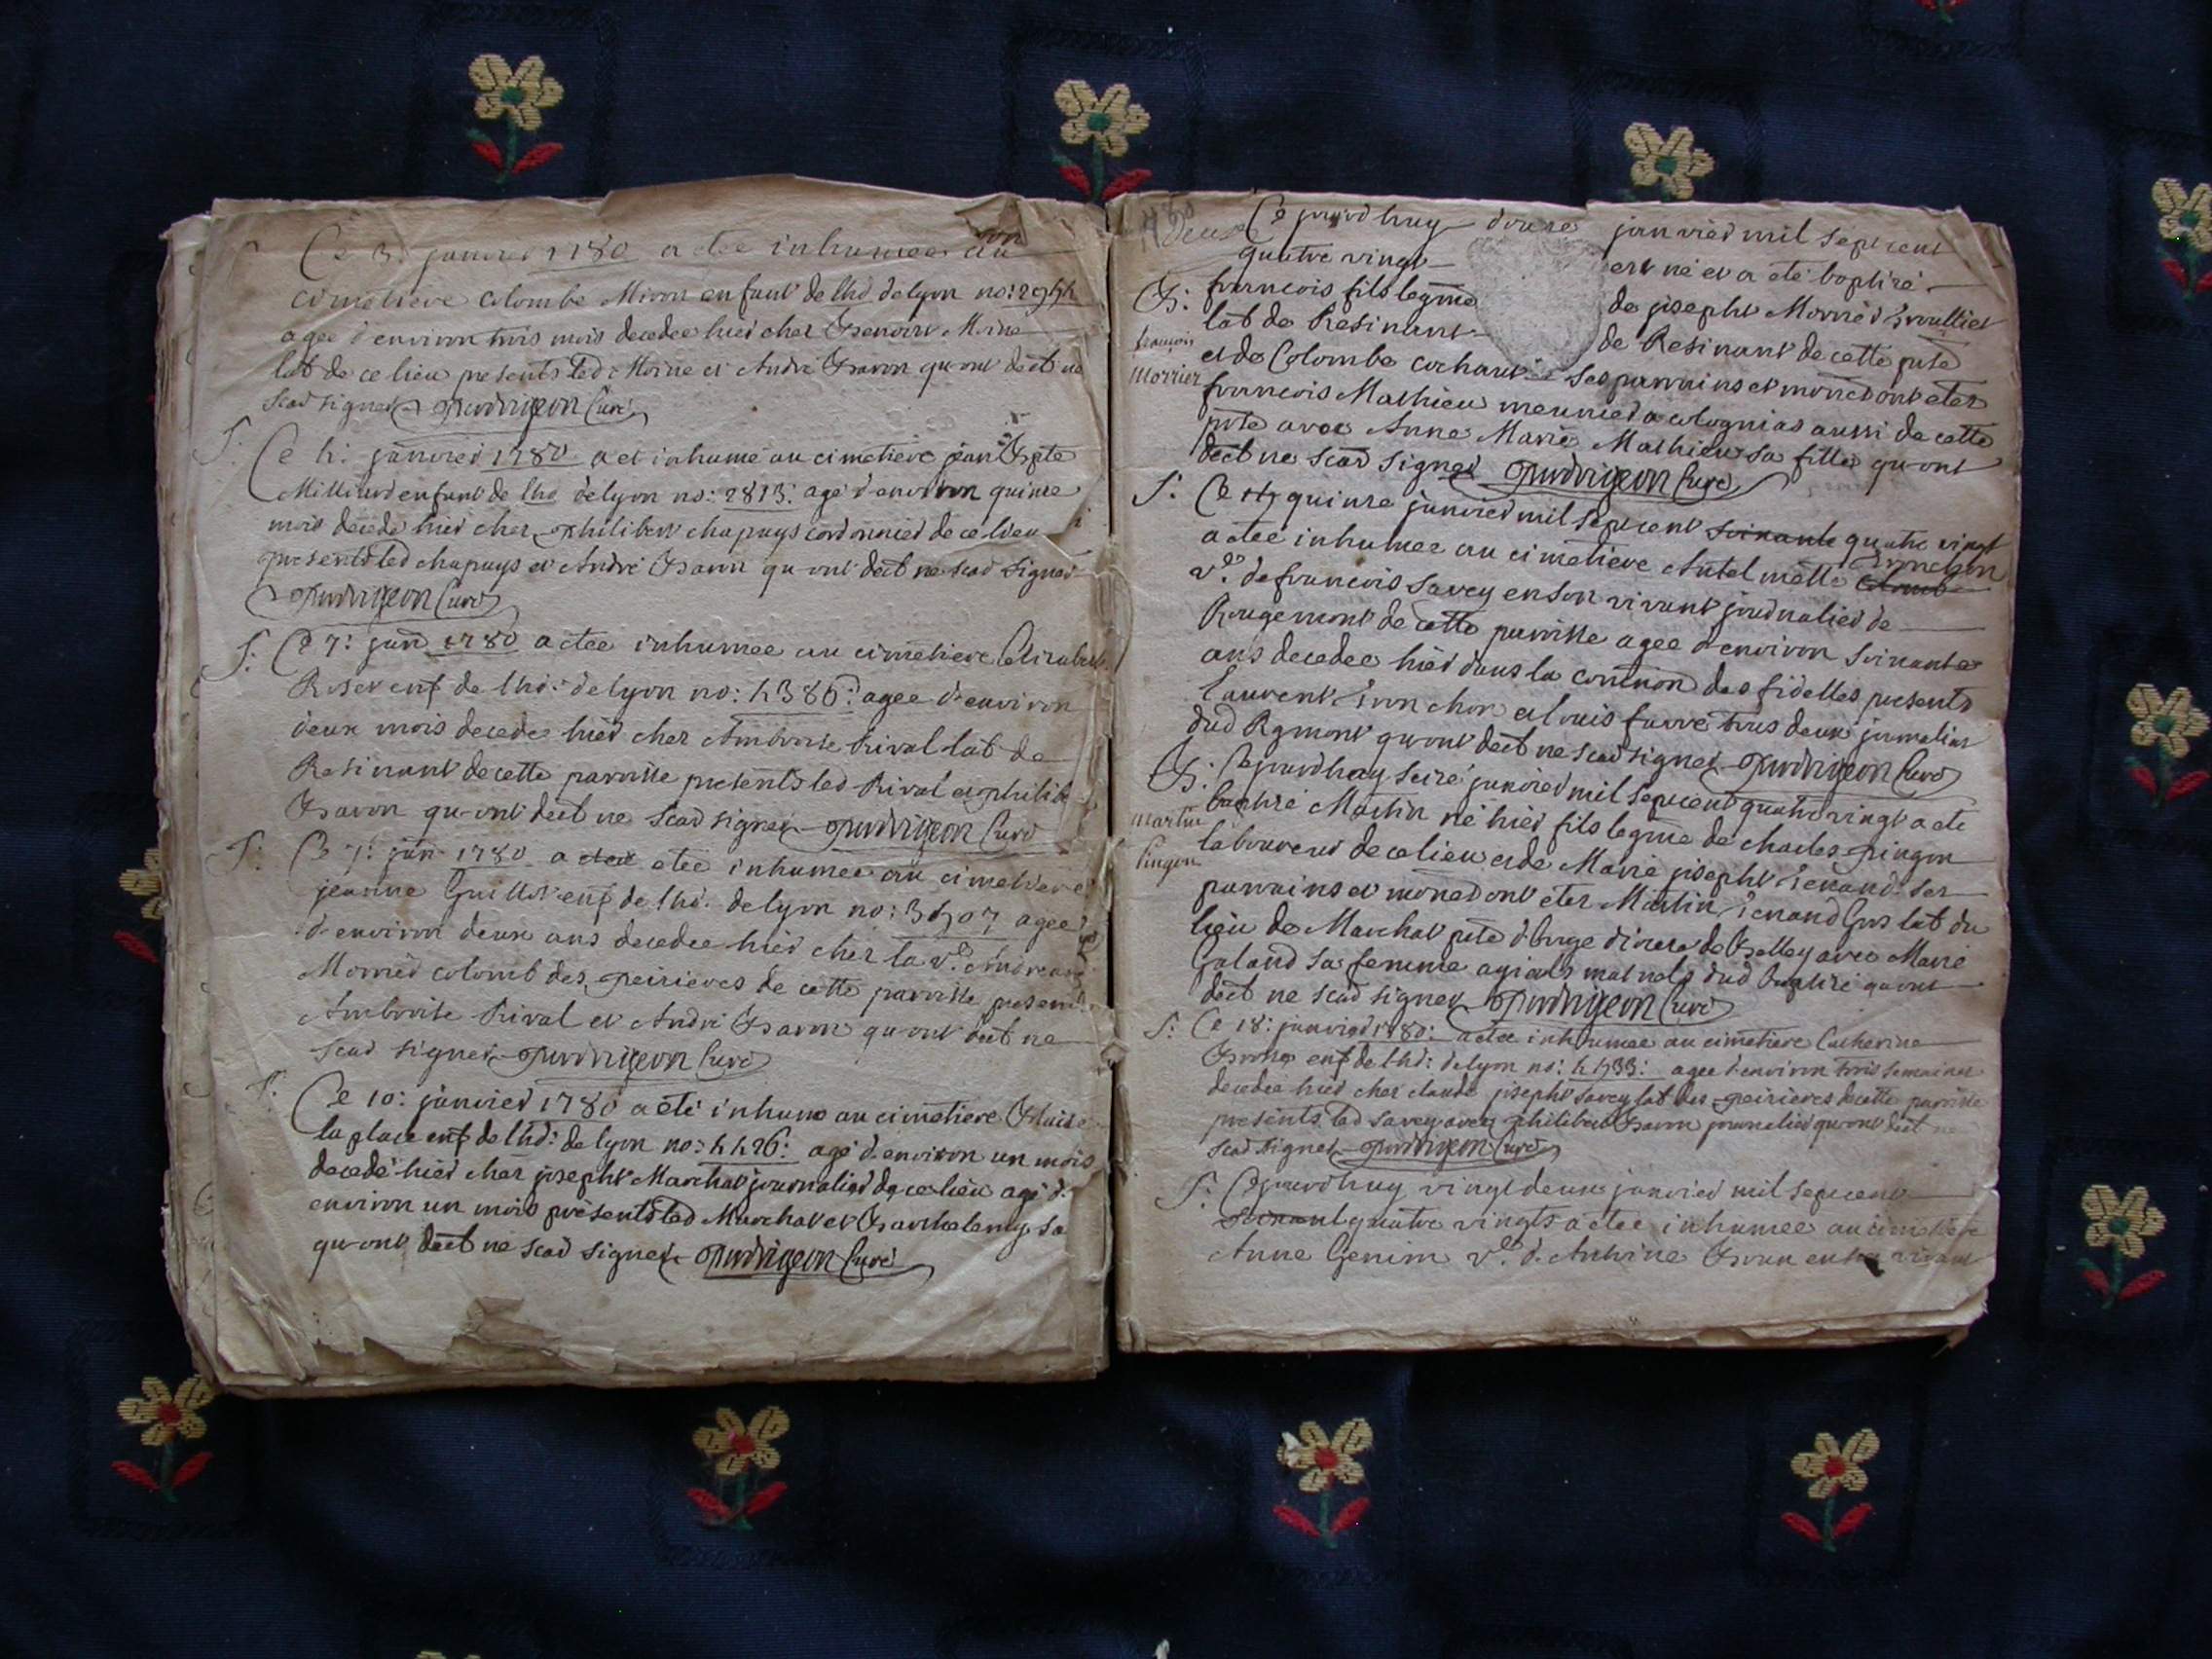 Ce 3: janvier 1780 a etee inhumee au
cimetiere colombe Miron enfant de lhd de lyon no:
agee d'environ trois mois decedee hier chez Benoit Moine
lab de ce lieu presents led Moine et André Baron qu-ont decl ne
scav signer Curé
S: Ce 4: janvier 1780 a eté inhumé au cimetiere jean Bpte
enfant de lhd de lyon no: 2813: agé d'environ quinze
mois decede hier chez philibert chapuys cordonnier de ce lieu
presents led chapuys et André Baron qu-ont decl ne scav signer
Curé
S: Ce 7: janv 1780 a etee inhumee au cimetiere
enf de lhd: de lyon no: 4386: agee d-environ
deux mois decedee hier chez Ambroise Rival lab de
Resinant de cette paroisse presents led Rival et philib
Baron qu-ont decl ne scav signer Curé
S: Ce 7: janv 1780 a etee inhumee au cimetiere
jeanne Guillot enf de lhd: de lyon no: agee
d-environ deux ans decedee hier chez la ve
Morrier colomb des peirieres de cette paroisse presents
Ambroise Rival et André Baron qu-ont decl ne
scav signer Curé
S: Ce 10: janvier 1780 a eté inhumé au cimetiere Blaise
la place enf de lhd: de lyon no: 4426: agé d-environ un mois
decedé hier chez joseph Marchat journalier de ce lieu agé d-
environ un mois présents led Marchat et Barthelemy
qu-ont decl ne scav signer Curé
Cejourdhuy douze janvier mil sept cent
quatre vingt est né et a eté baptizé
B: francois fils legme de joseph Morrier
lab de Resinant de Resinant de cette psse
françois
Morrier
et de Colombe cochant ses parrains et ont etez
francois Mathieu meunier a colognias aussi de cette
psse avec Anne Marie Mathieu sa fille qu-ont
decl ne scav signer Curé
S: Ce quinze janvier mil sept cent soixante quatre vingt
a etee inhumee au cimetiere
ve de francois Savey en son vivant journalier de
Rougemont de cette paroisse agee d-environ soixante
ans decedee hier dans la comūion des fidelles presents
Laurent et louis favre tous deux journaliers
dud Rgmont qu-ont decl ne scav signer Curé
B: Cejourdhuy seize janvier mil sept cent quatre vingt a eté
baptizé Martin né hier fils legme de charles pingon
Martin
Pingon
laboureur de ce lieu et de Marie joseph ses
parrains et ont etez Martin lab du
lieu de Marchat psse diocese de Belley avec Marie
Galand sa femme dud baptizé qu-ont
decl ne scav signer Curé
S: Ce 18: janvier 1780: a etee inhumee au cimetiere Catherine
enf de lhd: de lyon no: agee d-environ trois semaines
decedee hier chez claude joseph Savey lab des peirieres de cette paroisse
presents led Savey avec philibert Baron journalier qu-ont decl ne
scav signer Curé
S: Cejourdhuy vingt deux janvier mil sept cent
soixant quatre vingts a etee inhumee au cimetiere
Anne Genin ve d-Antoine en son vivant